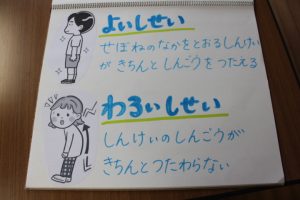 よいしせい
せぼねのなかをとおるしんけい
が きちんと しんごうをつたえる
わるいしせい
しんけいのしんごうが
きちんとつたわらない